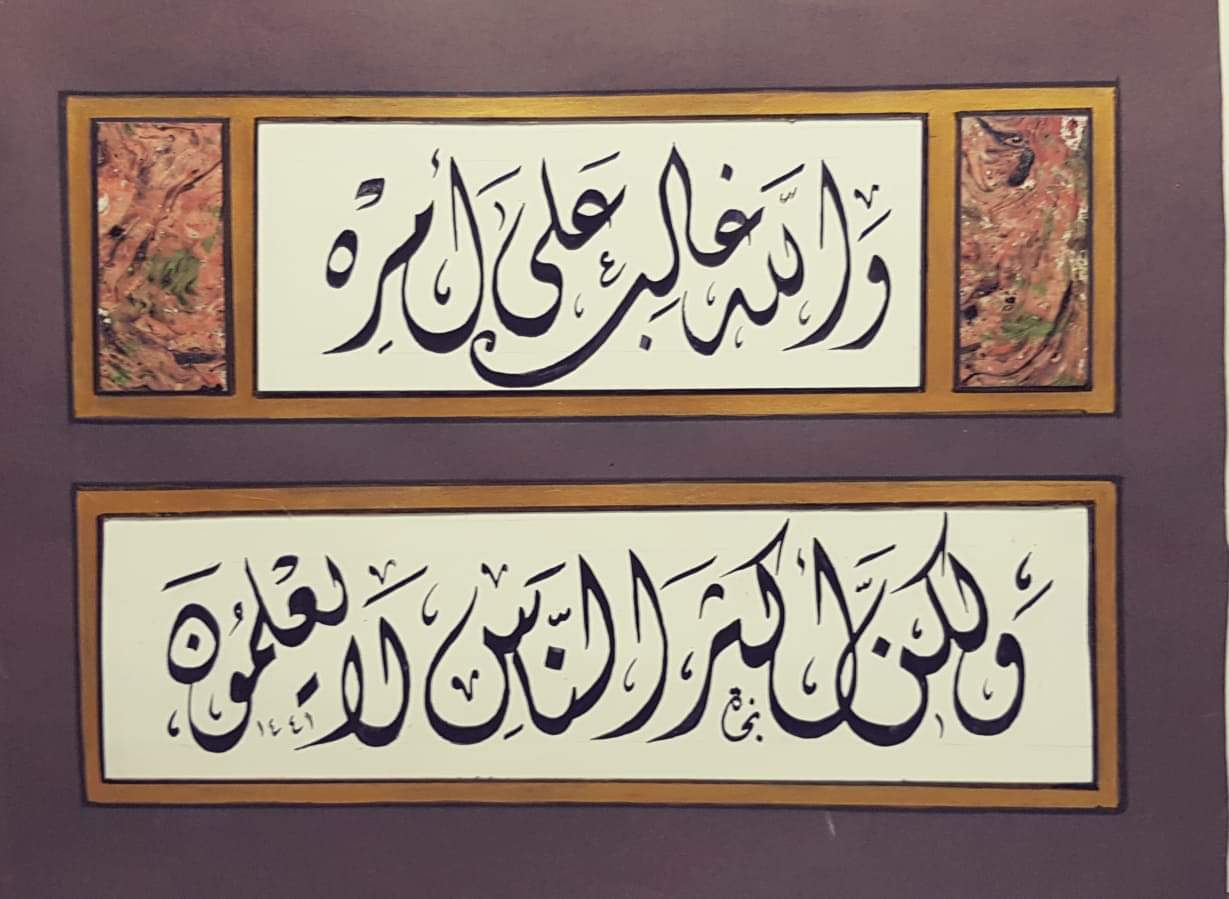 وَاللّٰه غَالِب عَلى أَمرِه
وَلكنَّ أكثر النَّاسِ لَا يعلمُون
١٤٤١